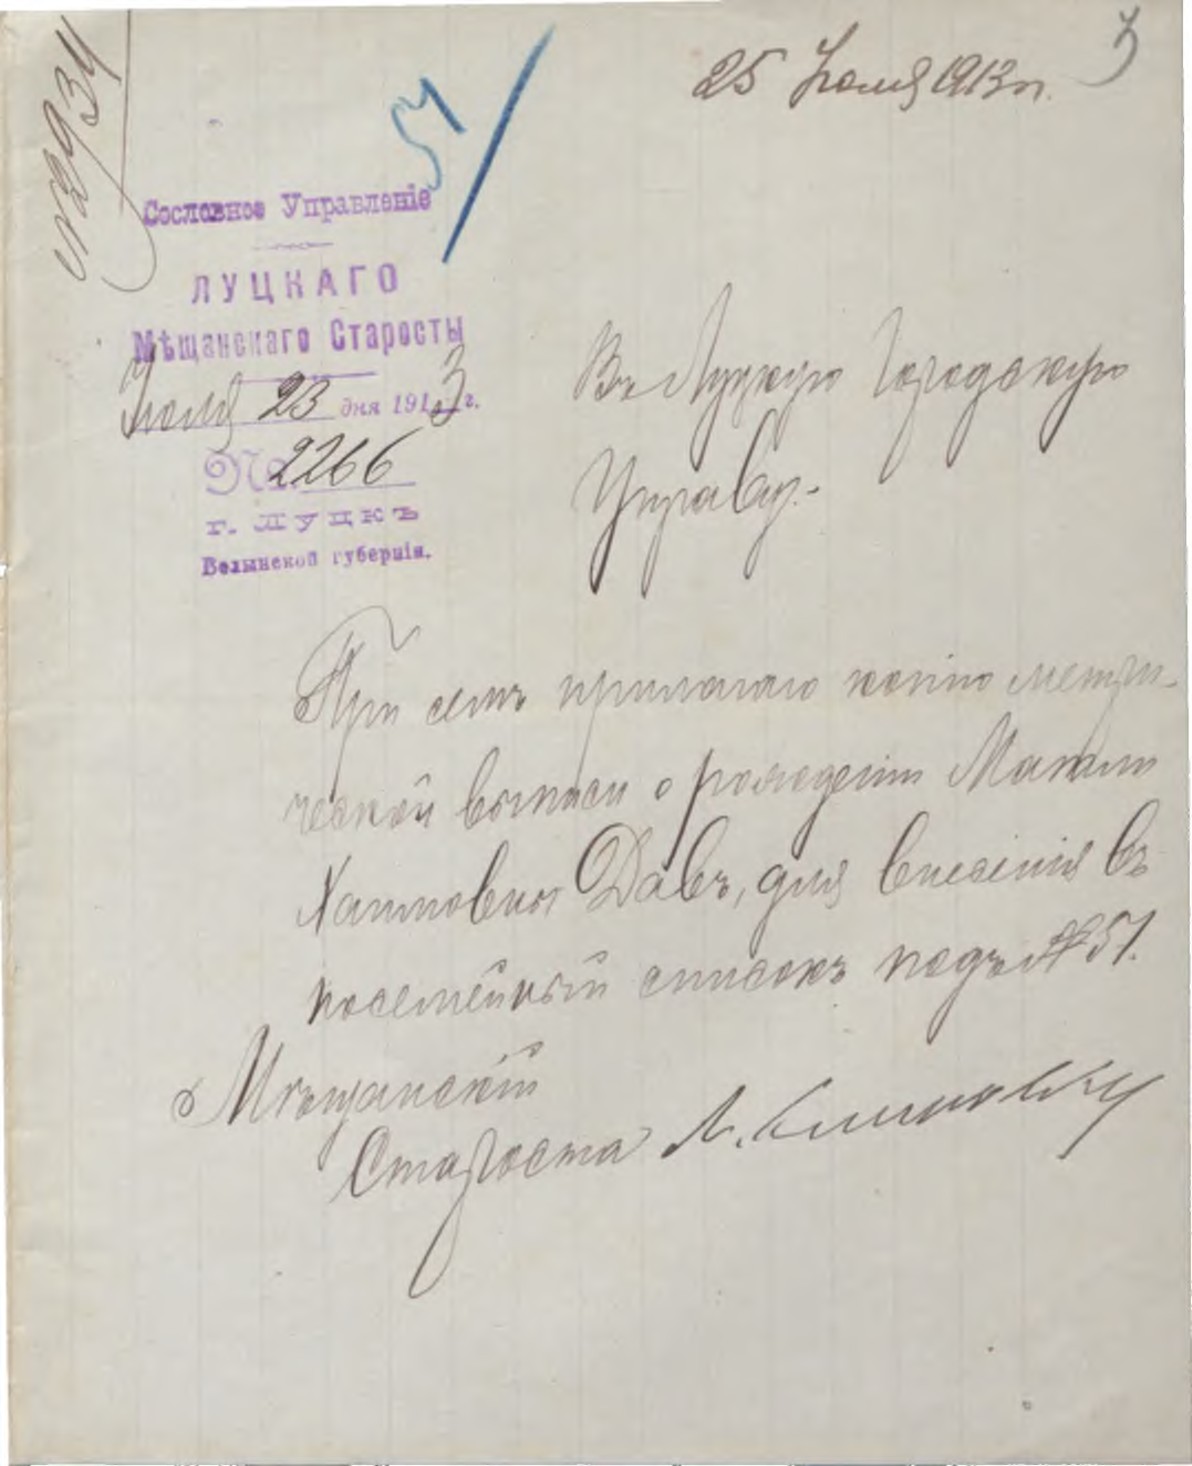 №2934
25 Июля 1913 г.
3
51
Сословное Управленіе
ЛУЦКАГО
Мѣщанскаго Старосты
Июля 23 дня 1913 г.
№ 2266
г. ЛУЦКЪ
Волынской губерніи.
Въ Луцкую Городскую
Управу.-
При семъ прилагаю копію метри-
ческой выписи о рожденіи
Хаимовны Давъ, для внесенія въ
посемейный списокъ подъ № 51.
Мѣщанскій
Староста